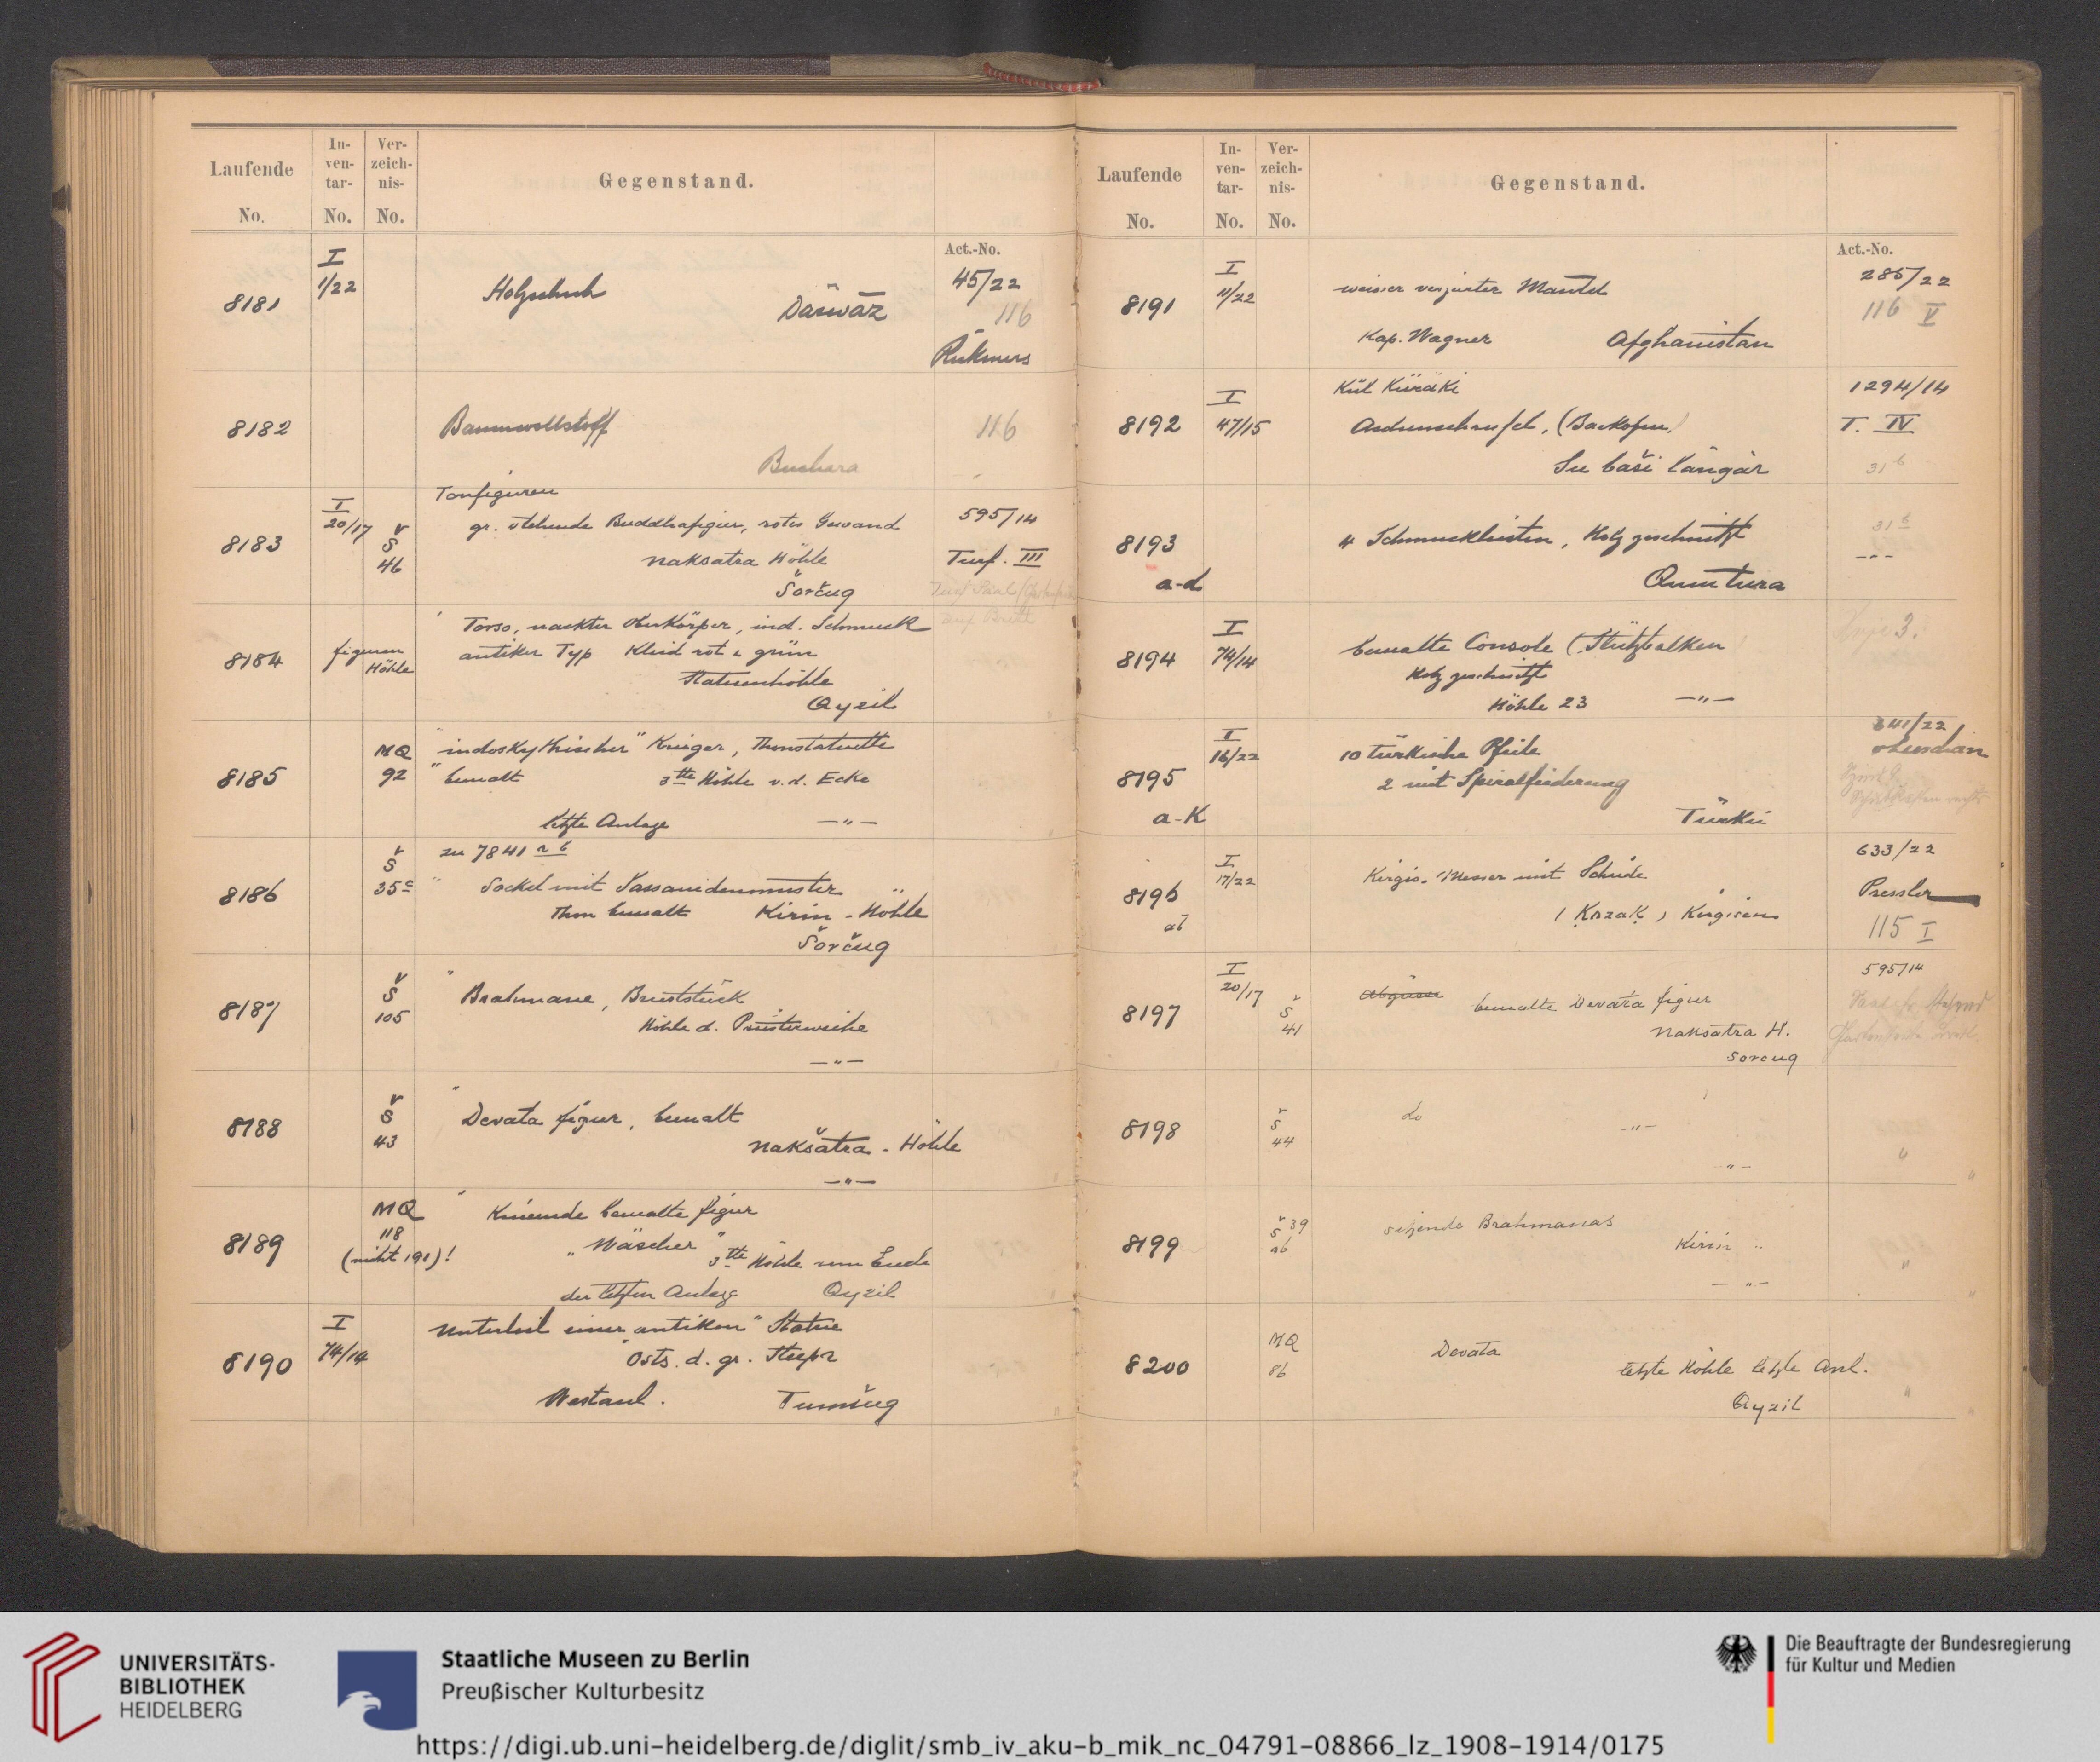 Laufende No.
In-ven-tar-No.
Ver-zeich-nis-No.
Gegenstand.
Act.-No.
8181
I
1/22
Holzschuh
Därwāz
45/22
116
Rickmers
8182
Baumwollstoff
Buchara
116
8183
I
20/17
Š
46
Tonfiguren
gr. stehende Buddhafigur, rotes Gewand
Naksatra Höhle
Šorčug
595/14
Turf. III
8184
figuren
Höhle
Torso, nackter Oberkörper, ind. Schmuck
antiker Typ Kleid rot u grün
Statuenhöhle
Qyzil
8185
MQ
92
"indoskythischer" Krieger, Thonstatuette
" bemalt 3tte Höhle v. d. Ecke
letzte Anlage —"—
8186
Š
35c
zu 7841 a b
" Sockel mit Sassanidenmuster
Thon bemalt Kirin-Höhle
Šorčug
8187
Š
105
" Brahmane, Bruststück
Höhle d. Priesterweihe
—"—
8188
Š
43
" Devata figur, bemalt
Nakšatra-Höhle
—"—
8189
MQ
118
(nicht 191)!
" Knieende bemalte figur
"Wäscher" 3tte Höhle vom Ende
der letzten Anlage Qyzil
8190
I
74/14
Unterteil einer "antiken" Statue
Osts. d. gr. Stupa
Westanl. Tumšug
Laufende No.
In-ven-tar-No.
Ver-zeich-nis-No.
Gegenstand.
Act.-No.
8191
I
11/22
weisser verzierter Mantel
Kap. Wagner Afghanistan
285/22
116 V
8192
I
47/15
Kül Küräki
Aschenschaufel, (Backofen)
Su baši Längär
1294/14
T. IV
31 b
8193
a-d
4 Schmuckleisten, Holz geschnitzt
Qumtura
31 b
---
8194
I
74/14
bemalte Console (Stützbalken)
Holz geschnitzt
Höhle 23 —"—
3.
8195
a-k
I
16/22
10 türkische Pfeile
2 mit Spiralfiederung
Türkei
341/22
8196
ab
I
17/22
Kirgis. Messer mit Scheide
(Kazak) Kirgisen
633/22
Pressler
115 I
8197
I
20/17
Š
41
Abgüsse bemalte Devata figur
Naksatra H.
Sorcug
595/14
8198
Š
44
do —"—
—"—
"
8199
Š 39
ab
sitzende Brahmanas
Kirin "
— "—
"
8200
MQ
86
Devata
letzte Höhle letzte Anl.
Qyzil
"
UNIVERSITÄTS-
BIBLIOTHEK
HEIDELBERG
Staatliche Museen zu Berlin
Preußischer Kulturbesitz
Die Beauftragte der Bundesregierung
für Kultur und Medien
https://digi.ub.uni-heidelberg.de/diglit/smb_iv_aku-b_mik_nc_04791-08866_lz_1908-1914/0175